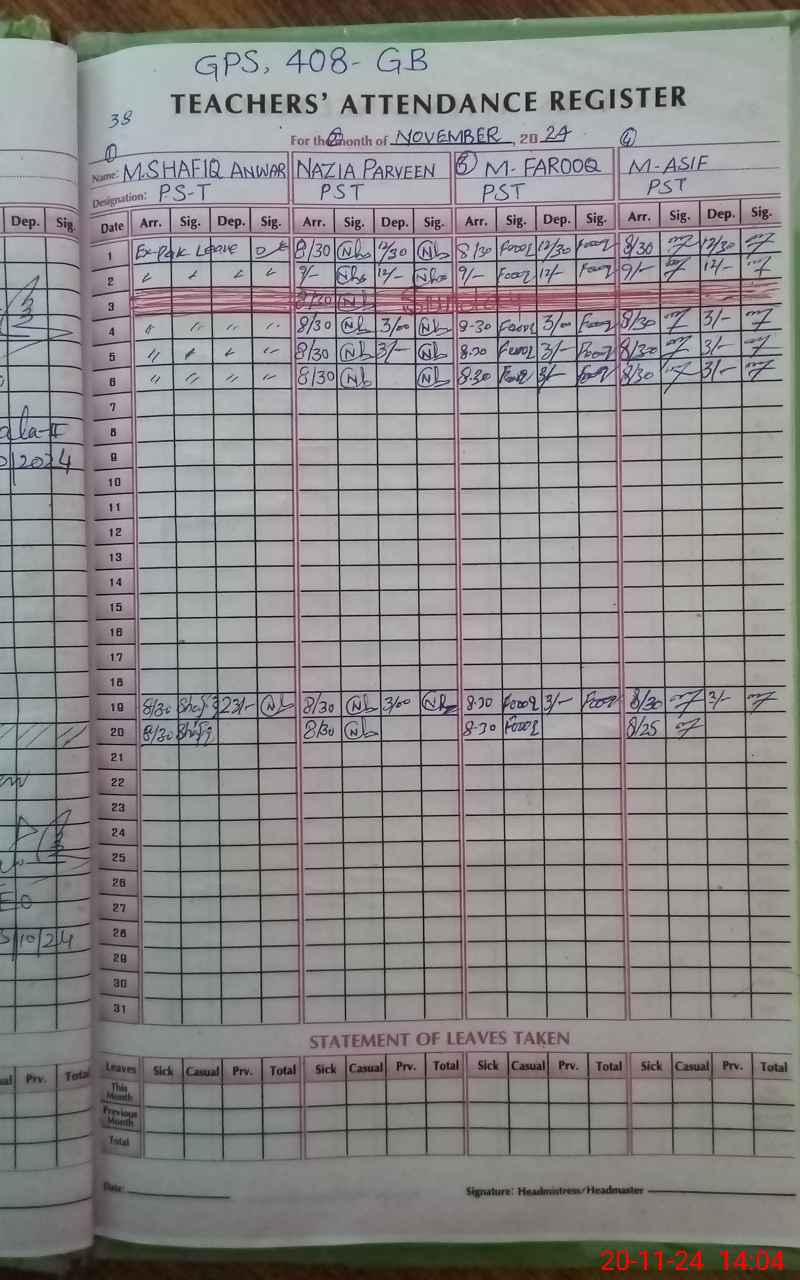 GPS, 408- GB
TEACHERS' ATTENDANCE REGISTER
38
For the month of NOVEMBER, 2024
① ② ③ ④
Name: M.SHAFIQ ANWAR NAZIA PARVEEN M- FAROOQ M-ASIF
Designation: PS-T PST PST PST
Dep. Sig. Date Arr. Sig. Dep. Sig. Arr. Sig. Dep. Sig. Arr. Sig. Dep. Sig. Arr. Sig. Dep. Sig.
1 Ex-Pak Leave 8/30 Nb 12/30 Nb 8/30 Farooq 12/30 Farooq 8/30 12/30
2 〃 〃 〃 〃 9/- Nb 12/- Nb 9/- Farooq 12/- Farooq 9/- 12/-
3 8/30 Nb Sunday
4 〃 〃 〃 〃 8/30 Nb 3/00 Nb 8-30 Farooq 3/00 Farooq 8/30 3/-
5 〃 〃 〃 〃 8/30 Nb 3/- Nb 8.30 Farooq 3/- Farooq 8/30 3/-
6 〃 〃 〃 〃 8/30 Nb Nb 8.30 Farooq 3/- Farooq 8/30 3/-
7
8
9
10
11
12
13
14
15
16
17
18
19 8/30 Shafiq 3/- Nb 8/30 Nb 3/00 Nb 8-30 Farooq 3/- Farooq 8/30 3/-
20 8/30 Shafiq 8/30 Nb 8-30 Farooq 8/25
21
22
23
24
25
26
27
28
29
30
31
STATEMENT OF LEAVES TAKEN
Prv. Total Leaves Sick Casual Prv. Total Sick Casual Prv. Total Sick Casual Prv. Total Sick Casual Prv. Total
This Month
Previous Month
Total
Date: Signature: Headmistress/Headmaster
20-11-24 14:04